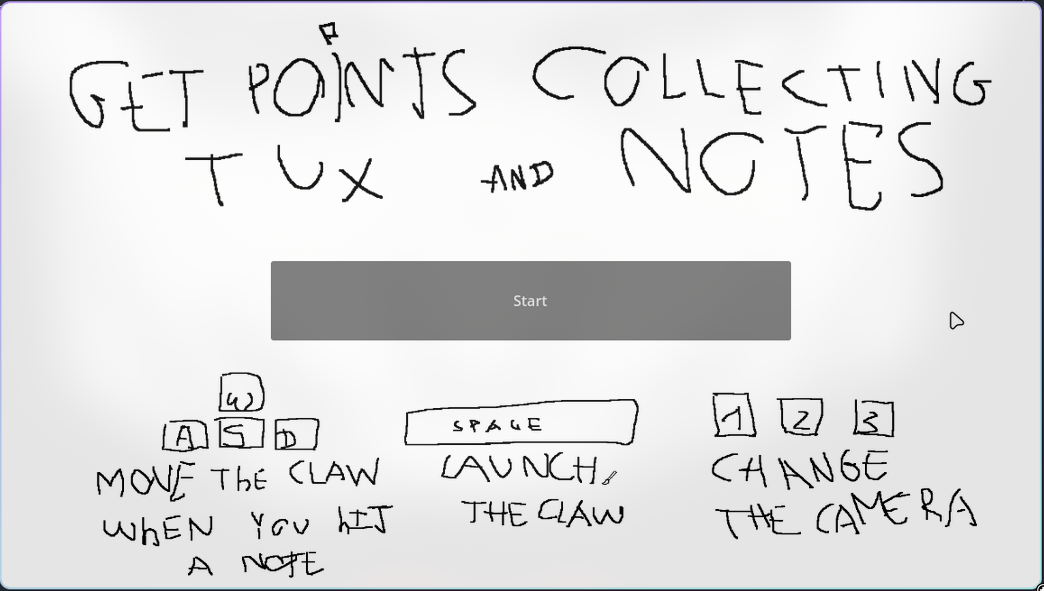 GET POINTS COLLECTING
TUX AND NOTES
Start
W
A S D
SPACE
1 2 3
MOVE ThE CLAW
WhEN YOU hIT
A NOTE
LAUNCH
THE CLAW
CHANGE
THE CAMERA